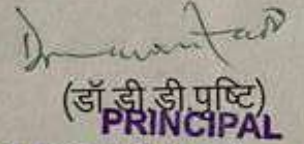 (डॉ.डी.डी.पुष्टि)
PRINCIPAL